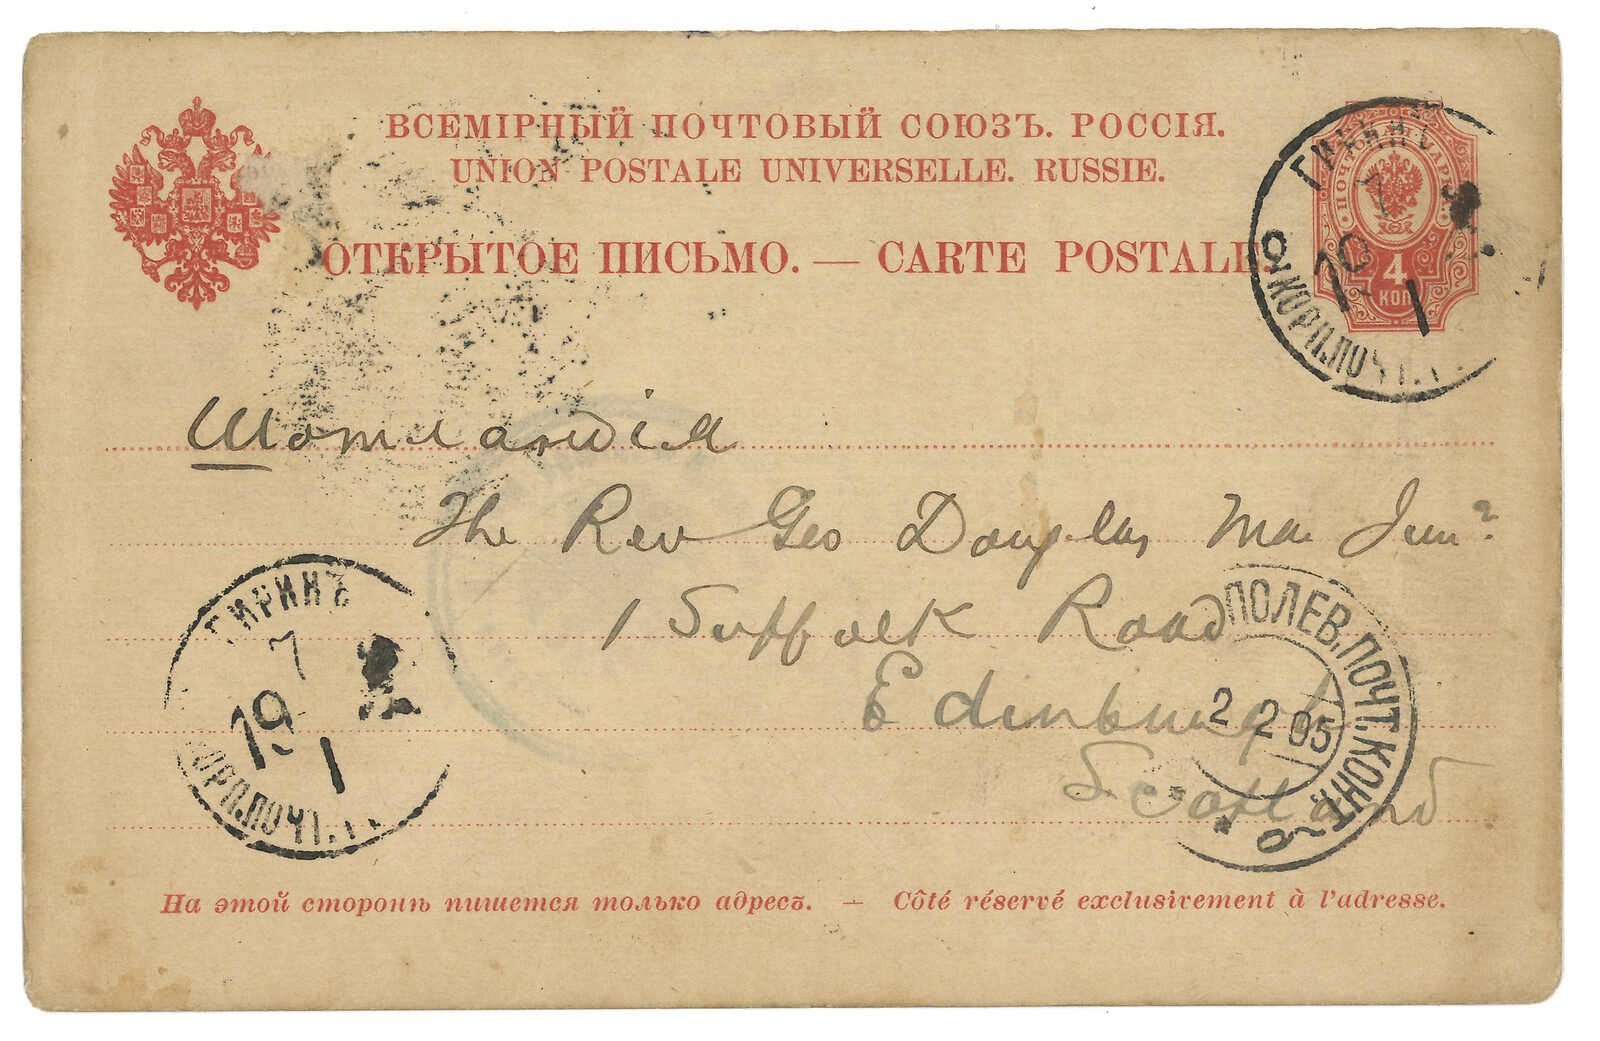 ВСЕМІРНЫЙ ПОЧТОВЫЙ СОЮЗЪ. РОССІЯ.
UNION POSTALE UNIVERSELLE. RUSSIE.
ОТКРЫТОЕ ПИСЬМО. — CARTE POSTALE.
ПОЧТОВАЯ МАРКА
4
КОП
ГИРИНЪ
7
19
1
Шотландія
The Rev Geo Douglas
1 Suffolk Road
Edinburgh
Scotland
ГИРИНЪ
7
19
1
ПОЛЕВ. ПОЧТ. КОНТ.
2 2 05
На этой сторонѣ пишется только адресъ. — Côté réservé exclusivement à l'adresse.